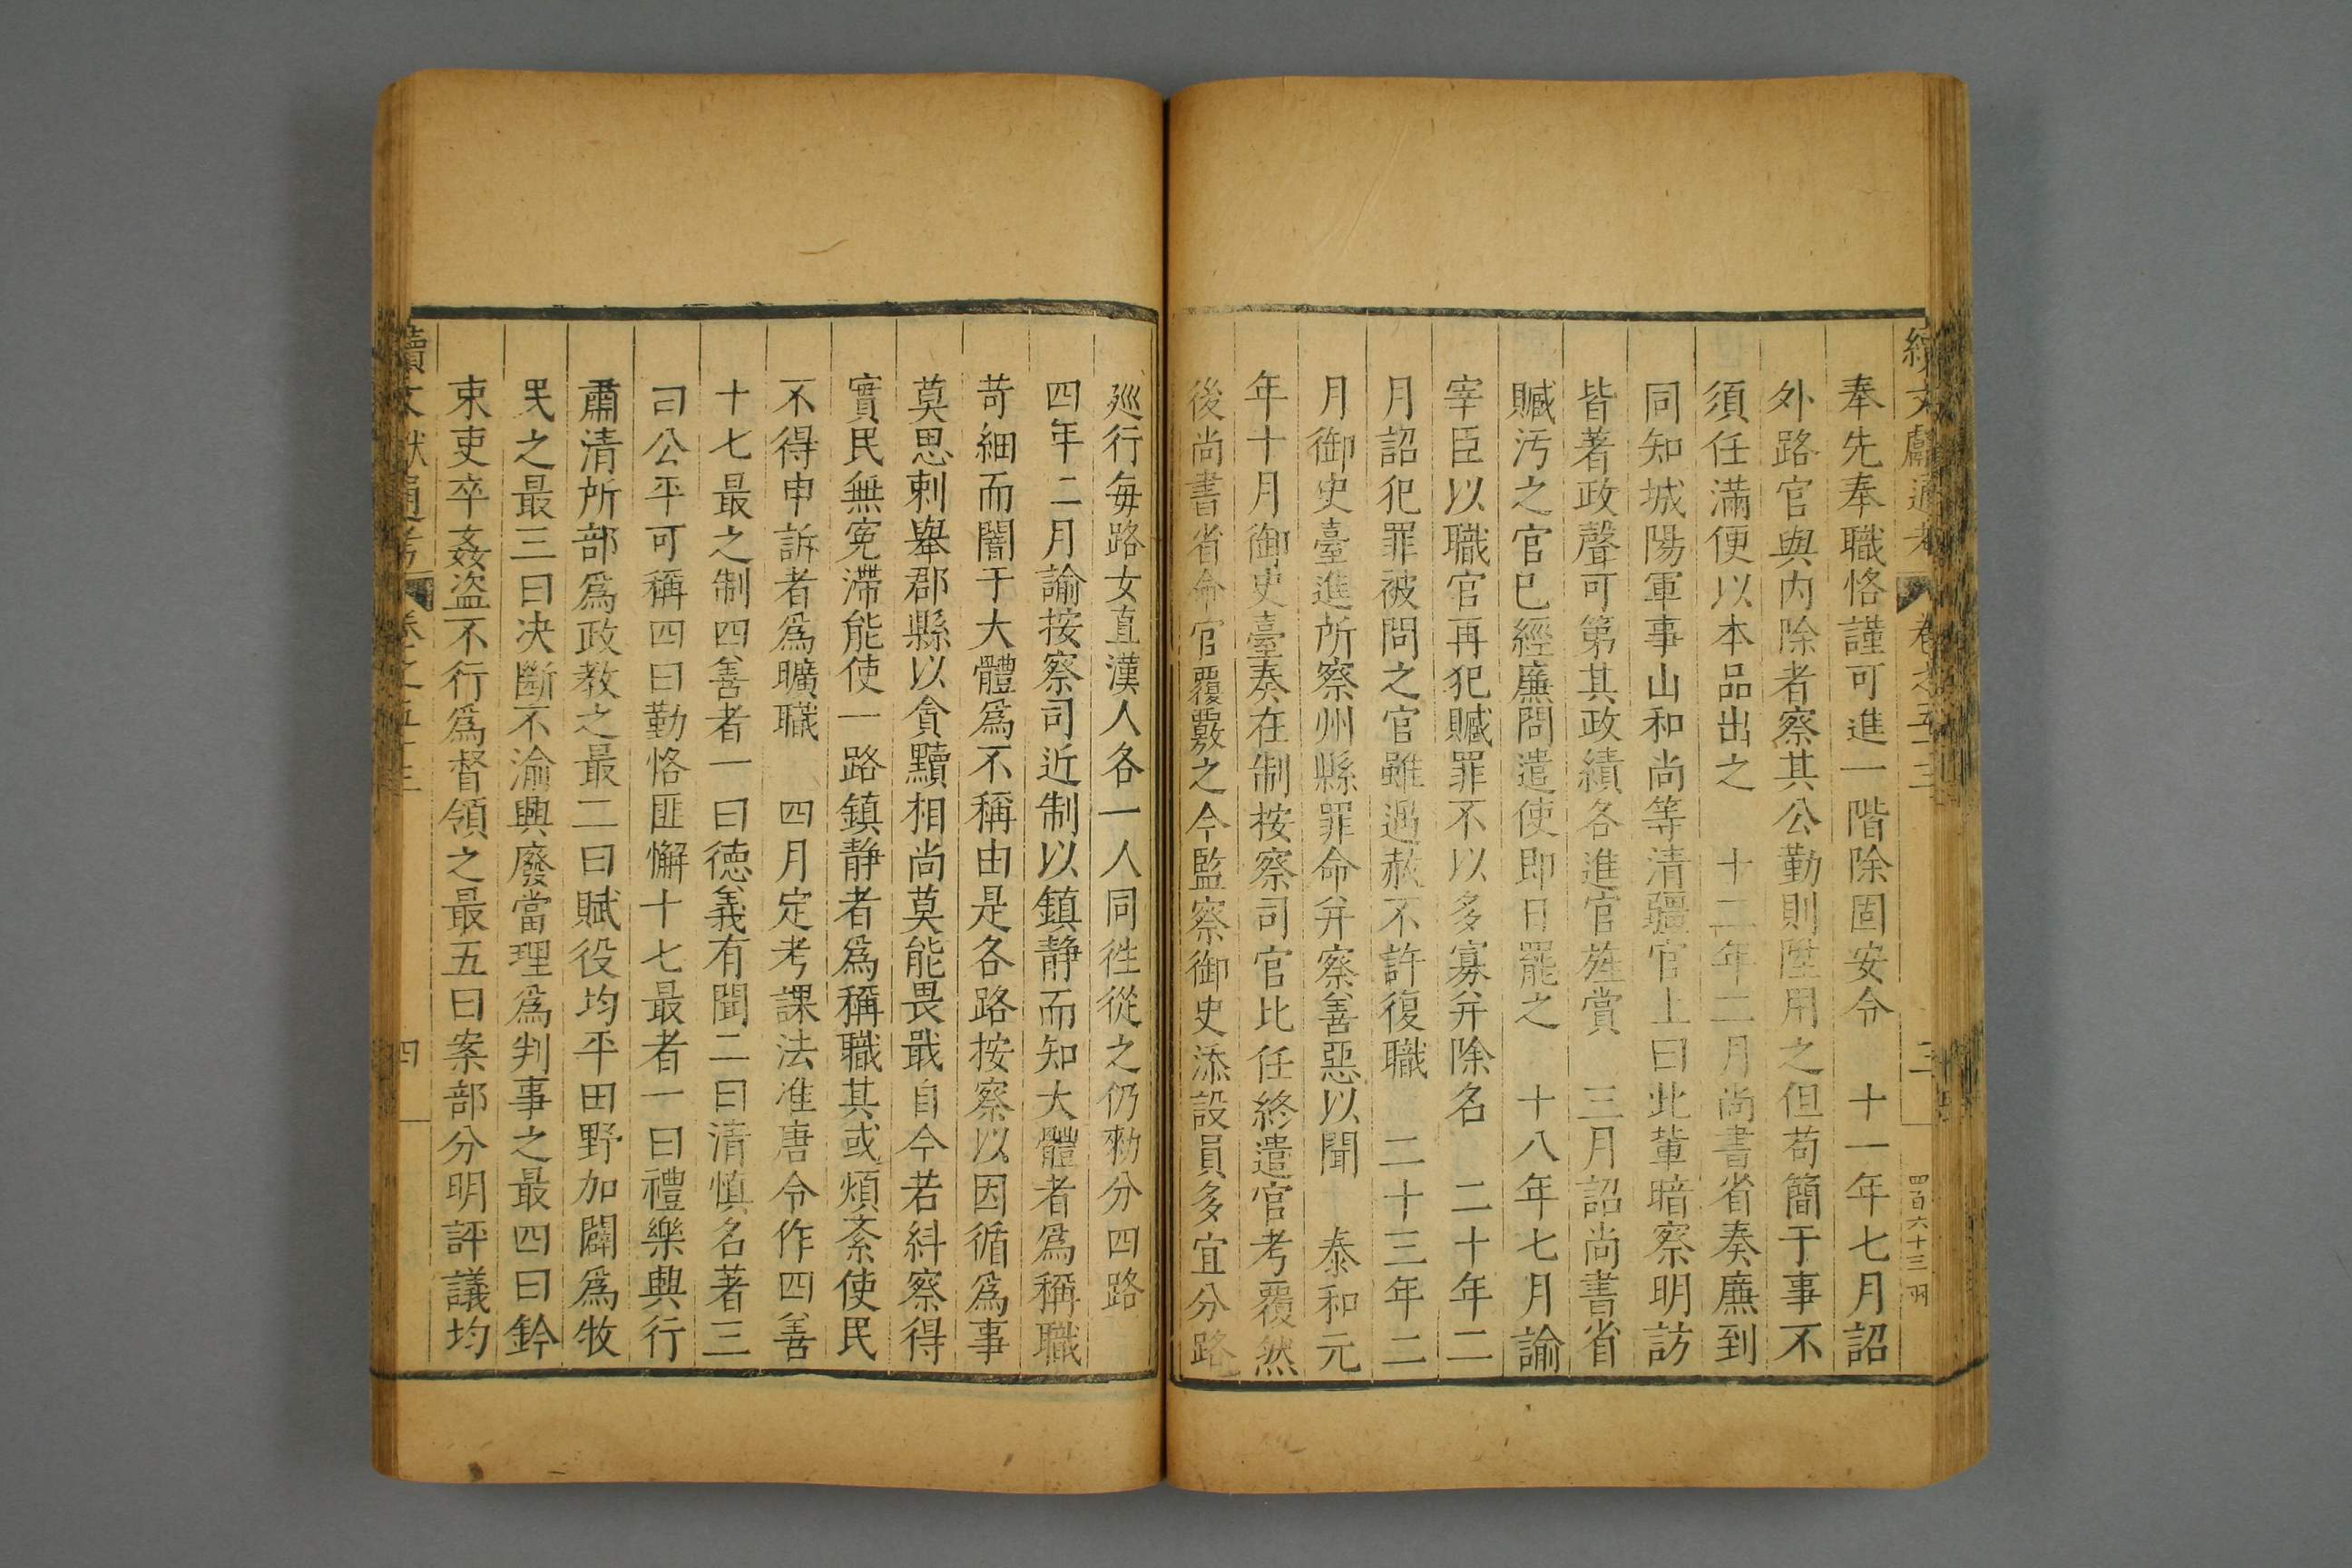 續文獻通考 卷之五十三 三 四百六十三 羽
奉先奉職恪謹可進一階除固安令 十一年七月詔
外路官與内除者察其公勤則陞用之但苟簡于事不
須任滿便以本品出之 十二年二月尚書省奏廉到
同知城陽軍事山和尚等清疆官上曰此輩暗察明訪
皆著政聲可第其政績各進官旌賞 三月詔尚書省
贓汚之官已經廉問遣使即日罷之 十八年七月諭
宰臣以職官再犯贓罪不以多寡并除名 二十年二
月詔犯罪被問之官雖遇赦不許復職 二十三年二
月御史臺進所察州縣罪命并察善惡以聞 泰和元
年十月御史臺奏在制按察司官比任終遣官考覆然
後尚書省命官覆覈之今監察御史添設員多宜分路
巡行每路女直漢人各一人同徃從之仍勑分四路
四年二月諭按察司近制以鎮静而知大體者爲稱職
苛細而闇于大體爲不稱由是各路按察以因循爲事
莫思刺舉郡縣以貪黷相尚莫能畏戢自今若糾察得
實民無寃滯能使一路鎮静者爲稱職其或煩紊使民
不得申訴者爲曠職 四月定考課法准唐令作四善
十七最之制四善者一曰德義有聞二曰清慎名著三
曰公平可稱四曰勤恪匪懈十七最者一曰禮樂興行
肅清所部爲政教之最二曰賦役均平田野加闢爲牧
民之最三曰决斷不渝與廢當理爲判事之最四曰鈐
束吏卒姦盗不行爲督領之最五曰案部分明評議均
續文獻通考 卷之五十三 四